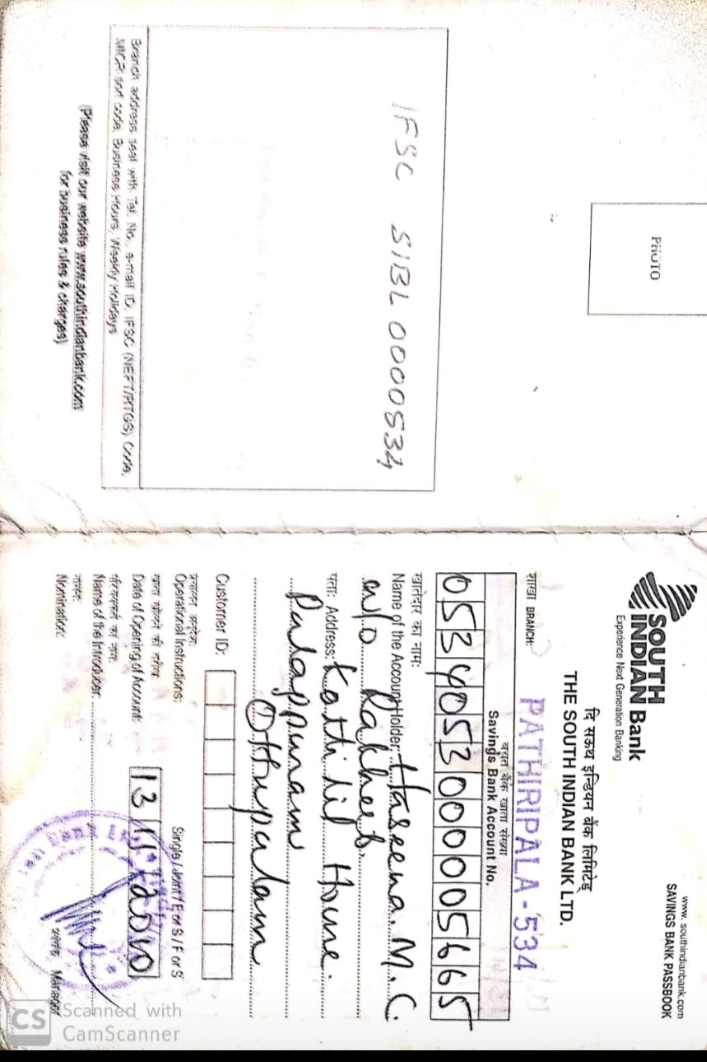 PHOTO
IFSC SIBL0000534
Branch address seal with Tel. No., e-mail ID, IFSC (NEFT/RTGS) Code,
MICR sort code, Business Hours, Weekly Holidays
(Please visit our website www.southindianbank.com
for business rules & charges)
www.southindianbank.com
SAVINGS BANK PASSBOOK
SOUTH
INDIAN Bank
Experience Next Generation Banking
दि साउथ इन्डियन बैंक लिमिटेड
THE SOUTH INDIAN BANK LTD.
शाखा BRANCH: PATHIRIPALA - 534
बचत बैंक खाता संख्या
Savings Bank Account No.
0534053000005665
खातेदार का नाम:
Name of the Account Holder: Haseena. M. C.
w/o Rakheeb.
पता: Address: Kotti lil House.
Palappuram
Ottupalam
Customer ID:
Operational Instructions: Single / Joint / E or S / F or S
Date of Opening of Account: 13 11 2010
Name of the Introducer:
नामन:
Nomination:
Manager
CS Scanned with
CamScanner